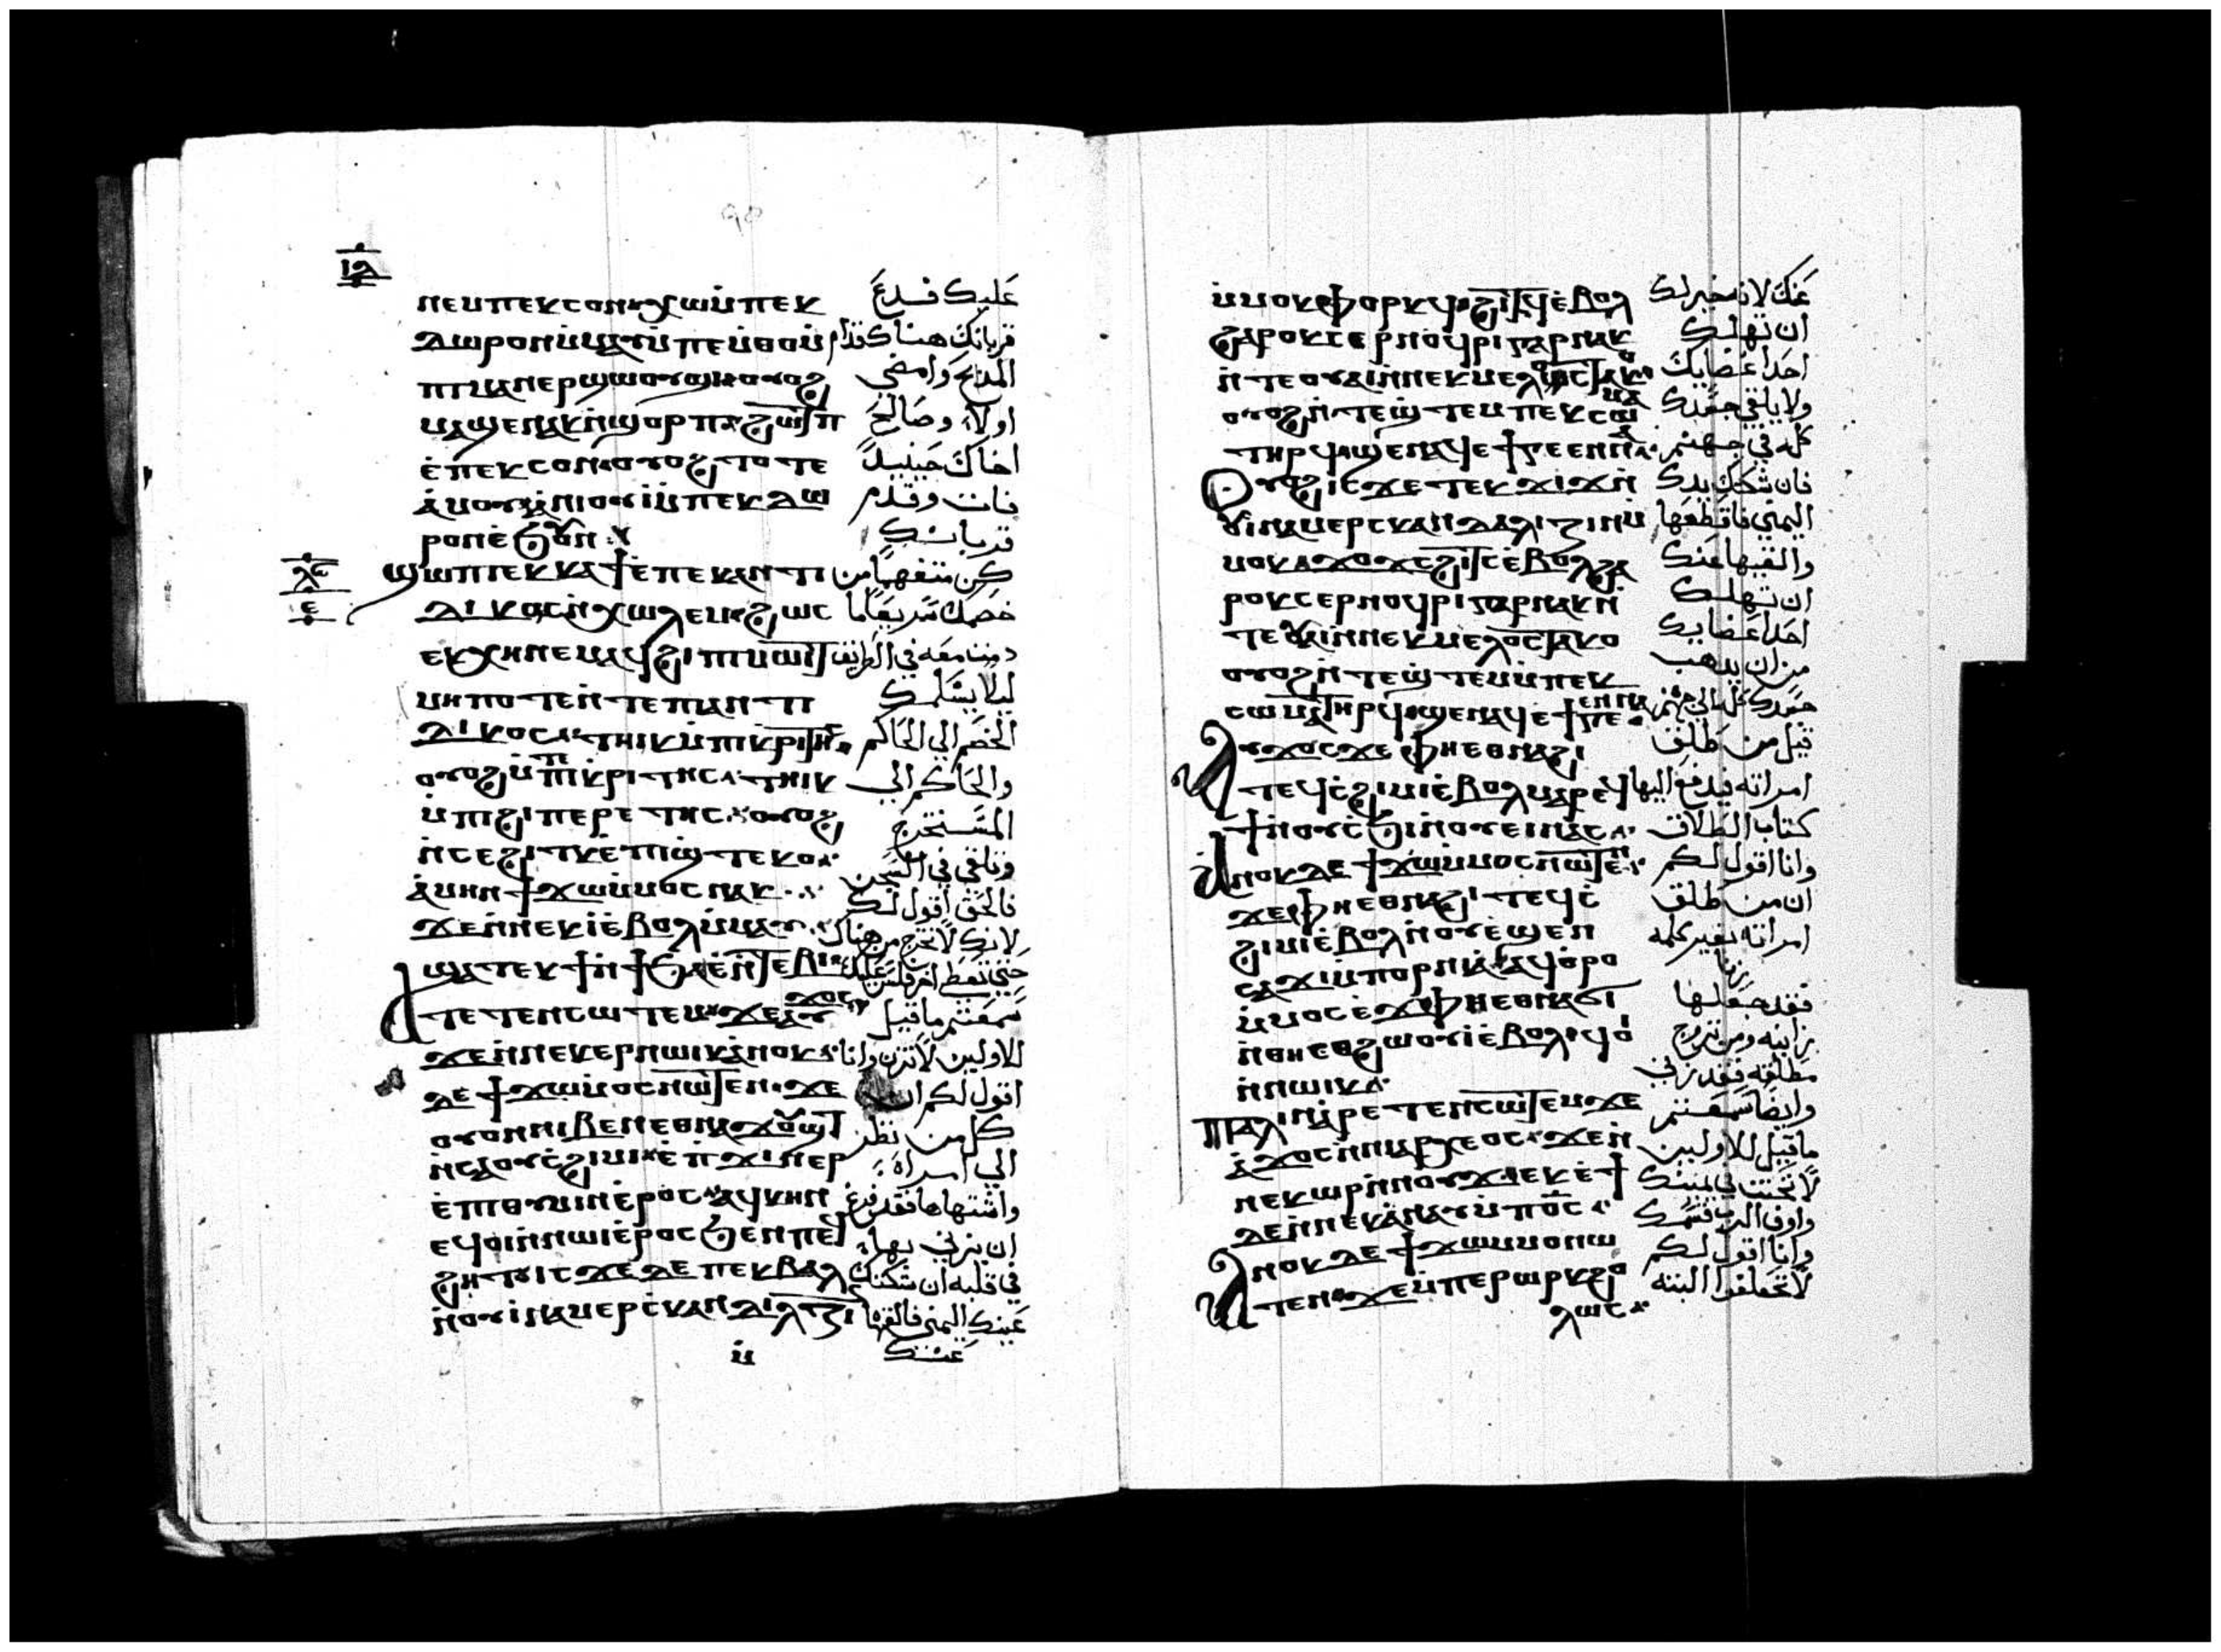 ⲓⲇ
ⲛⲉⲙⲡⲉⲕⲥⲟⲛ ⲭⲱⲙ̇ⲡⲉⲕ عليك فدع
ⲇⲱⲣⲟⲛⲙ̇ⲙⲁⲩⲙ̇ⲡⲉⲙ̇ⲑⲟⲙ̇ قربانك هناك قدام
ⲡⲓⲙⲁⲛⲉⲣϣⲱⲟⲩϣⲓ ⲟⲩⲟϩ المذبح وامضي
ⲙⲁϣⲉⲛⲁⲕⲛ̇ϣⲟⲣⲡ ϩⲱⲧⲡ اولا وصالح
ⲉ̇ⲡⲉⲕⲥⲟⲛ ⲟⲩⲟϩ ⲧⲟⲧⲉ اخاك حينيد
ⲁ̇ⲙⲟⲩ ⲁ̇ⲛⲓⲟⲩⲓ̇ⲙ̇ⲡⲉⲕⲇⲱ فات وقدم
ⲣⲟⲛⲉ̇ϧⲟⲩⲛ قربانك
ⲗⲋ
ⲉ
ϣⲱⲡⲓⲉⲕⲕⲁϯⲉ̇ⲡⲉⲕⲁⲛⲧⲓ كن متفهما من
ⲇⲓⲕⲟⲥⲛ̇ⲭⲱⲗⲉⲙ ϩⲱⲥ خصمك سريعا ما
ⲉⲕⲭⲏⲛⲉⲙⲁϥϩⲓⲡⲓⲙⲱⲓⲧ دمت معه في الطريق
ⲙⲏⲡⲟⲧⲉⲛ̇ⲧⲉⲡⲓⲁⲛⲧⲓ ليلا يسلمك
ⲇⲓⲕⲟⲥ ⲧⲏⲓⲕⲙ̇ⲡⲓⲕⲣⲓⲧⲏⲥ الخصم الي الحاكم
ⲟⲩⲟϩⲙ̇ⲡⲓⲕⲣⲓⲧⲏⲥ ⲧⲏⲓⲕ والحاكم الي
ⲙ̇ⲡⲓϩⲓⲡⲉⲣⲉⲧⲏⲥ ⲟⲩⲟϩ المستخرج
ⲛ̇ⲥⲉϩⲓⲧⲕⲉ̇ⲡⲓϣ̇ⲧⲉⲕⲟ وتلقي في السجن
ⲁ̇ⲙⲏⲛϯϫⲱⲙ̇ⲙⲟⲥⲛⲁⲕ فالحق اقول لك
ϫⲉⲛ̇ⲛⲉⲕⲓ̇ⲉ̇ⲃⲟⲗⲙ̇ⲙⲁⲩ لانك لا تخرج من هناك
ϣⲁⲧⲉⲕϯⲛ̇ϯϧⲁⲉ̇ⲛ̇ⲧⲉⲃⲓ حتي تعطي اخر فلس عليك
ⲁⲧⲉⲧⲉⲛⲥⲱⲧⲉⲙ ϫⲉⲁⲩϫⲟⲥ سمعتم ما قيل
ϫⲉⲛ̇ⲛⲉⲕⲉⲣⲛⲱⲓⲕ ⲁ̇ⲛⲟⲕ للاولين لا تزن وانا
ⲇⲉϯϫⲱⲙ̇ⲙⲟⲥⲛⲱⲧⲉⲛ ϫⲉ اقول لكم ان
ⲟⲩⲟⲛⲛⲓⲃⲉⲛⲉⲑⲛⲁϫⲟⲩϣⲧ كل من نظر
ⲛ̇ⲥⲁⲟⲩⲥ̇ϩⲓⲙⲓ ⲉ̇ⲡϫⲓⲛⲉⲣ الي امراة
ⲉ̇ⲡⲓⲑⲩⲙⲓⲛⲉ̇ⲣⲟⲥ ⲁϥⲕⲏⲛ واشتهاها فقد فرغ
ⲉϥⲟⲓⲛ̇ⲛⲱⲓⲕⲉ̇ⲣⲟⲥϧⲉⲛⲡⲉϥ ان يزني بها
ϩⲏⲧ ⲓⲥϫⲉⲇⲉⲡⲉⲕⲃⲁⲗ في قلبه ان شكتك
ⲛ̇ⲟⲩⲓ̇ⲛⲁⲙⲉⲣⲥ̇ⲕⲁⲛⲇⲁⲗⲓⲍⲓ عينك اليمني فالقها
ⲙ̇ عنك
ⲙ̇ⲙⲟⲕ ⲫⲟⲣⲕϥ ϩⲓⲧϥⲉ̇ⲃⲟⲗ عنك لانه خير لك
ϩⲁⲣⲟⲕ ⲥⲉⲣⲛⲟϥⲣⲓⲅⲁⲣⲛⲁⲕ ان تهلك
ⲛ̇ⲧⲉⲟⲩⲁⲓⲛ̇ⲛⲉⲕⲙⲉⲗⲟⲥⲧⲁⲕⲟ احد اعضايك
ⲟⲩⲟϩⲛ̇ⲧⲉϣ̇ⲧⲉⲙⲡⲉⲕⲥⲱⲙⲁ ولا يلقي جسدك
ⲧⲏⲣϥ ϣⲉⲛⲁϥⲉ̇ϯⲅⲉⲉⲛⲛⲁ كله في جهنم
ⲟⲩⲟϩⲓⲥϫⲉⲧⲉⲕϫⲓϫⲛ̇ فان شكتك يدك
ⲟⲩⲓ̇ⲛⲁⲙⲉⲣⲥⲕⲁⲛⲇⲁⲗⲓⲍⲓⲛⲙ̇ اليمني فاقطعها
ⲙⲟⲕ ϫⲟϫⲥϩⲓⲧⲥⲉ̇ⲃⲟⲗϩⲁ والقيها عنك
ⲣⲟⲕⲥⲉⲣⲛⲟϥⲣⲓⲅⲁⲣⲛⲁⲕⲛ̇ ان تهلك
ⲧⲉⲟⲩⲁⲓⲛ̇ⲛⲉⲕⲙⲉⲗⲟⲥⲧⲁⲕⲟ احد اعضايك
ⲟⲩⲟϩⲛ̇ⲧⲉϣ̇ⲧⲉⲙ̇ⲙ̇ⲡⲉⲕ من ان يذهب
ⲥⲱⲙⲁⲧⲏⲣϥ ϣⲉⲛⲁϥⲉ̇ϯⲅⲉⲉⲛⲛⲁ جسدك كله الي جهنم
ⲁⲩϫⲟⲥϫⲉⲫⲏⲉⲑⲛⲁϩⲓ قيل من طلق
ⲧⲉϥⲥ̇ϩⲓⲙⲓⲉ̇ⲃⲟⲗⲙⲁⲣⲉϥ امراته فيدفع اليها
ϯⲛ̇ⲟⲩⲥ̇ϧⲓⲛ̇ⲟⲩⲉⲓⲛⲁⲥ كتاب الطلاق
ⲁⲛⲟⲕⲇⲉϯϫⲱⲙ̇ⲙⲟⲥⲛⲱⲧⲉⲛ وانا اقول لكم
ϫⲉⲫⲏⲉⲑⲛⲁϩⲓⲧⲉϥⲥ̇ ان من طلق
ϩⲓⲙⲓⲉ̇ⲃⲟⲗⲛ̇ⲟⲩⲉϣⲉⲛ امراته بغير كلمه
ⲥⲁϫⲓⲙ̇ⲡⲟⲣⲛⲓⲁ ⲁϥⲑⲣⲟ زنا
ⲙ̇ⲙⲟⲥⲉ ⲫⲏⲉⲑⲛⲁϭⲓ فقد جعلها
ⲛ̇ⲑⲏⲉⲑϩⲱⲟⲩⲓⲉ̇ⲃⲟⲗ ϥⲟⲓ زانيه ومن تزوج
ⲛ̇ⲛⲱⲓⲕ مطلقه فقد زني
ⲡⲁⲗⲓⲛⲁ̇ⲣⲉⲧⲉⲛⲥⲱⲧⲉⲙϫⲉ وايضا سمعتم
ⲁ̇ϫⲟⲥⲛ̇ⲛⲓⲁⲣⲭⲉⲟⲥ ϫⲉⲛ̇ ما قيل للاولين
ⲛⲉⲕⲱⲣⲕⲛ̇ⲛⲟⲩϫ ⲉⲕⲉ̇ϯ لا تحنث في يمينك
ⲇⲉⲛ̇ⲛⲉⲕⲁ̇ⲛⲁⲩⲙ̇ⲡⲟ̅ⲥ̅ واوف الرب قسمك
ⲁⲛⲟⲕⲇⲉϯϫⲱⲙ̇ⲙⲟⲛⲱ وانا اقول لكم
ⲧⲉⲛ ϫⲉⲙ̇ⲡⲉⲣⲱⲣⲕϩⲟ لا تحلفوا البته
ⲗⲱⲥ